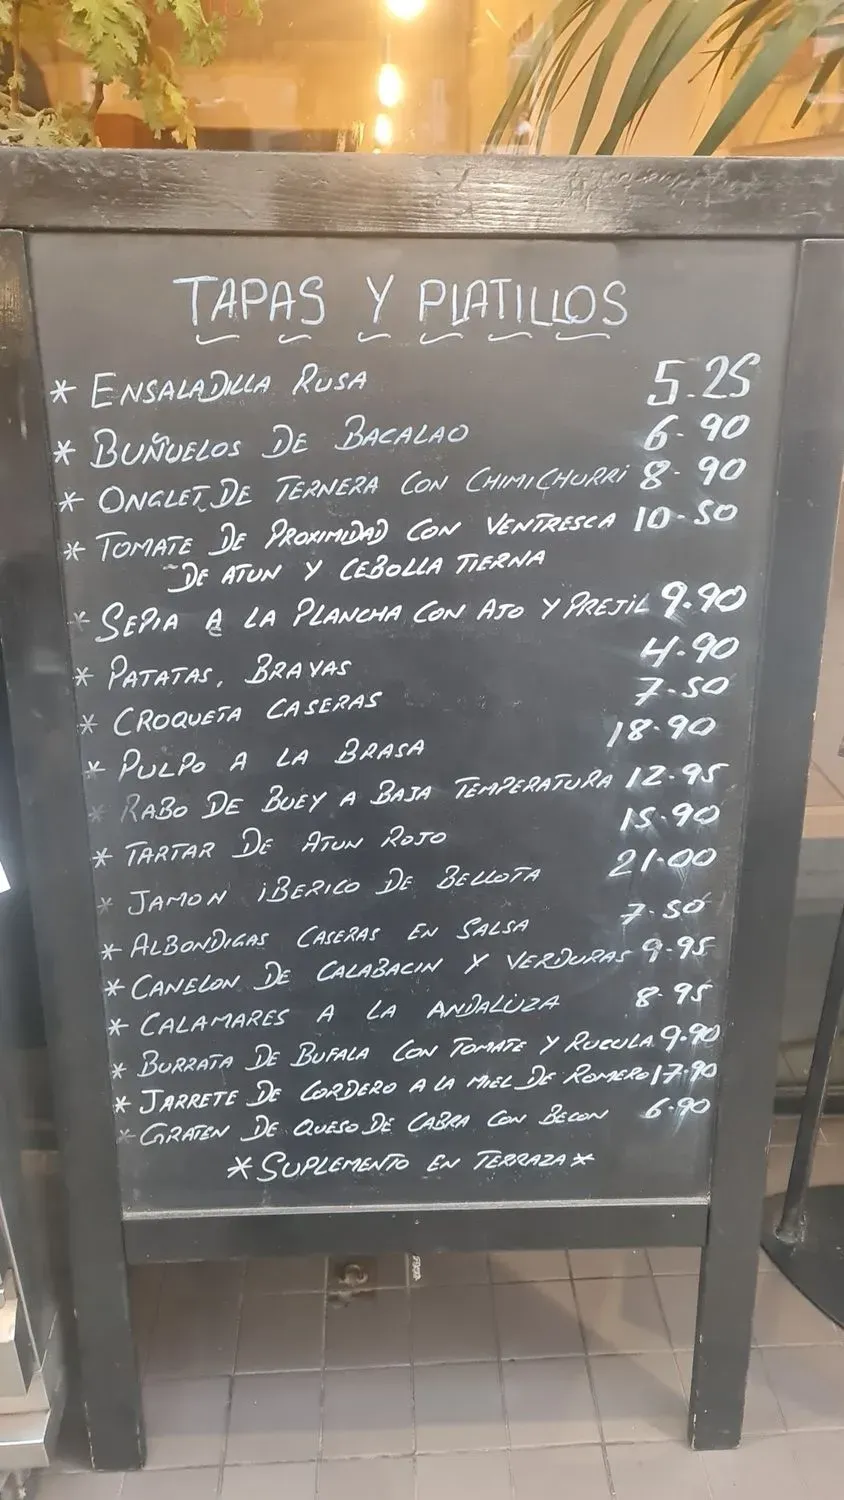 TAPAS Y PLATILLOS
* ENSALADILLA RUSA 5.25
* BUÑUELOS DE BACALAO 6.90
* ONGLET DE TERNERA CON CHIMICHURRI 8.90
* TOMATE DE PROXIMIDAD CON VENTRESCA 10.50
DE ATUN Y CEBOLLA TIERNA
* SEPIA A LA PLANCHA CON AJO Y PREJIL 9.90
* PATATAS, BRAVAS 4.90
* CROQUETA CASERAS 7.50
* PULPO A LA BRASA 18.90
* RABO DE BUEY A BAJA TEMPERATURA 12.95
* TARTAR DE ATUN ROJO 15.90
* JAMON IBERICO DE BELLOTA 21.00
* ALBONDIGAS CASERAS EN SALSA 7.50
* CANELON DE CALABACIN Y VERDURAS 9.95
* CALAMARES A LA ANDALUZA 8.95
* BURRATA DE BUFALA CON TOMATE Y RUCULA 9.90
* JARRETE DE CORDERO A LA MIEL DE ROMERO 17.90
* GRATEN DE QUESO DE CABRA CON BECON 6.90
* SUPLEMENTO EN TERRAZA *